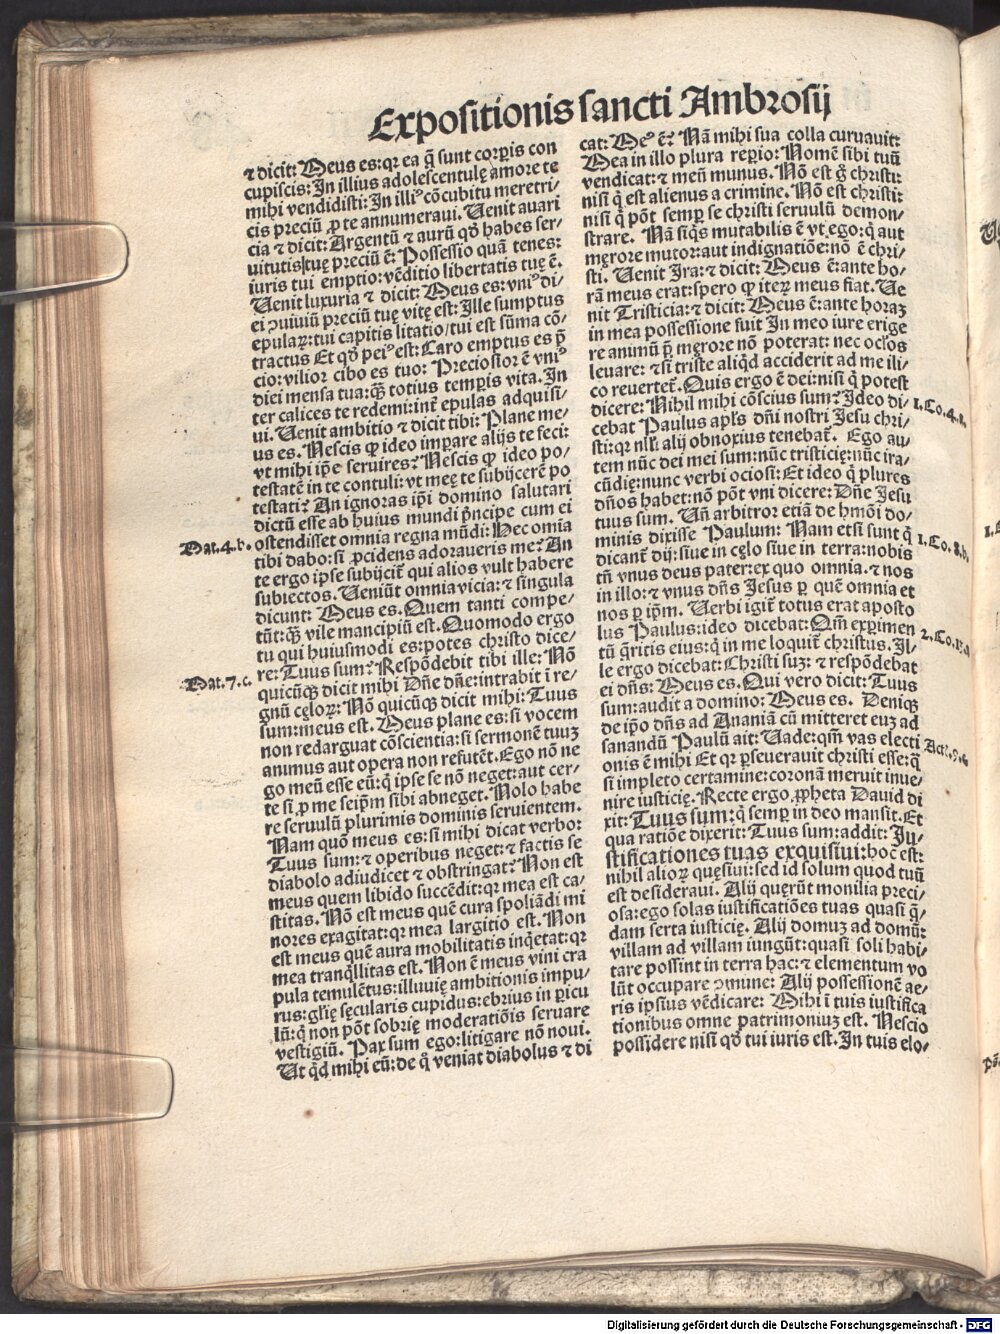 Expositionis sancti Ambrosij
⁊ dicit: Meus es: qr ea q̄ sunt corꝑis con
cupiscis: In illius adolescentulę amore te
mihi vendidisti: In illiꝰ cōcubitu meretri/
cis preciū ꝓ te annumeraui. Uenit auari
cia ⁊ dicit: Argentū ⁊ aurū qd̄ habes ser/
uitutis tuę preciū ē: Possessio quā tenes:
iuris tui emptio: vēditio libertatis tuę ē.
Uenit luxuria ⁊ dicit: Meus es: vniꝰ di/
ei ꝯuiuiū preciū tuę vitę est: Ille sumptus
epularꝝ: tui capitis litatio/ tui est sūma cō/
tractus Et qd̄ peiꝰ est: Caro emptus es p̄
cio: vilior cibo es tuo: Preciosior ē vniꝰ
diei mensa tua: qꝫ totius temꝑis vita. In
ter calices te redemi: int̄ epulas adquisi/
ui. Uenit ambitio ⁊ dicit tibi: Plane me/
us es. Nescis ꝙ ideo imꝑare alijs te feci:
vt mihi ip̄e seruires? Nescis ꝙ ideo po/
testatē in te contuli: vt meę te subijcerē po
testati? An ignoras ip̄i domino salutari
dictū esse ab huius mundi p̄ncipe cum ei
Mat. 4. b. ostendisset omnia regna mūdi: Hec omīa
tibi dabo: si ꝓcidens adoraueris me? An
te ergo ipse subijcit̄ qui alios vult habere
subiectos. Ueniūt omnia vicia: ⁊ singula
dicunt: Meus es. Quem tanti compe/
tūt: qꝫ vile mancipiū est. Quomodo ergo
tu qui huiusmodi es: potes christo dice/
re: Tuus sum? Respōdebit tibi ille: Nō
Mat. 7. c. quicūqꝫ dicit mihi Dn̄e dn̄e: intrabit ī re/
gnū cęlorꝝ: Nō quicūqꝫ dicit mihi: Tuus
sum: meus est. Meus plane es: si vocem
non redarguat cōscientia: si sermonē tuuꝫ
animus aut opera non refutēt. Ego nō ne
go meū esse eū: q̄ ipse se nō neget: aut cer/
te si ꝓ me seip̄m sibi abneget. Nolo habe
re seruulū plurimis dominis seruientem.
Nam quō meus es: si mihi dicat verbo:
Tuus sum: ⁊ operibus neget: ⁊ factis se
diabolo adiudicet ⁊ obstringat? Non est
meus quem libido succēdit: qr mea est ca/
stitas. Nō est meus quē cura spoliādi mi
nores exagitat: qr mea largitio est. Non
est meus quē aura mobilitatis inq̄etat: qr
mea tranq̄llitas est. Non ē meus vini cra
pula temulētus: illuuię ambitionis impu/
rus: gl̄ię sęcularis cupidus: ebrius in ꝑicu
lū: q̄ non pōt sobrię moderatiōis seruare
vestigiū. Pax sum ego: litigare nō noui.
Ut qd̄ mihi eū: de q̄ veniat diabolus ⁊ di
cat: Meꝰ ē? Nā mihi sua colla curuauit:
Mea in illo plura reꝑio: Nomē sibi tuū
vendicat: ⁊ meū munus. Nō est g̊ christi:
nisi q̄ est alienus a crimine. Nō est christi:
nisi q̄ pōt semꝑ se christi seruulū demon/
strare. Nā siq̄s mutabilis ē vt ego: q̄ aut
męrore mutor: aut indignatiōe: nō ē chri/
sti. Uenit Ira: ⁊ dicit: Meus ē: ante ho/
rā meus erat: spero ꝙ iteꝝ meus fiat. Ue
nit Tristicia: ⁊ dicit: Meus ē: ante horaꝫ
in mea possessione fuit In meo iure erige
re animū p̄ męrore nō poterat: nec oclōs
leuare: ⁊ si triste aliqd̄ acciderit ad me ili/
co reuertet̄. Quis ergo ē dei: nisi q̄ potest
dicere: Nihil mihi cōscius sum? Ideo di/ 1. Co. 4. a.
cebat Paulus apl̄s dn̄i nostri Jesu chri/
sti: qr nll̄i alij obnoxius tenebat̄. Ego au/
tem nūc dei mei sum: nūc tristicię: nūc ira/
cūdię: nunc verbi ociosi: Et ideo q̄ plures
dn̄os habet: nō pōt vni dicere: Dn̄e Jesu
tuus sum. Uñ arbitror etiā de hm̄ōi do/
minis dixisse Paulum: Nam etsi sunt q̄ 1. Co. 8. b.
dicant̄ dij: siue in cęlo siue in terra: nobis
tn̄ vnus deus pater: ex quo omnia. ⁊ nos
in illo: ⁊ vnus dn̄s Jesus ꝑ quē omnia et
nos ꝑ ip̄m. Uerbi igit̄ totus erat aposto
lus Paulus: ideo dicebat: Qm̄ exꝑimen 2. Co. 13. a
tū q̄ritis eius: q̄ in me loquit̄ christus. Il/
le ergo dicebat: Christi suꝫ: ⁊ respōdebat
ei dn̄s: Meus es. Qui vero dicit: Tuus
sum: audit a domino: Meus es. Deniqꝫ
de ip̄o dn̄s ad Ananiā cū mitteret euꝫ ad
sanandū Paulū ait: Uade: qm̄ vas electi Act. 9. c
onis ē mihi Et qr ꝑseuerauit christi esse: q̄
si impleto certamine: coronā meruit inue/
nire iusticię. Recte ergo ꝓpheta Dauid di
xit: Tuus sum: q̄ semꝑ in deo mansit. Et
qua ratiōe dixerit: Tuus sum: addit: Ju/
stificationes tuas exquisiui: hoc est:
nihil aliorꝝ quęsiui: sed id solum quod tuū
est desideraui. Alij quęrūt monilia preci/
osa: ego solas iustificatiōes tuas quasi q̄/
dam serta iusticię. Alij domuꝫ ad domū:
villam ad villam iungūt: quasi soli habi/
tare possint in terra hac: ⁊ elementum vo
lūt occupare ꝯmune: Alij possessionē ae/
ris ipsius vēdicare: Mihi ī tuis iustifica
tionibus omne patrimoniuꝫ est. Nescio
possidere nisi qd̄ tui iuris est. In tuis elo/
Digitalisierung gefördert durch die Deutsche Forschungsgemeinschaft - DFG